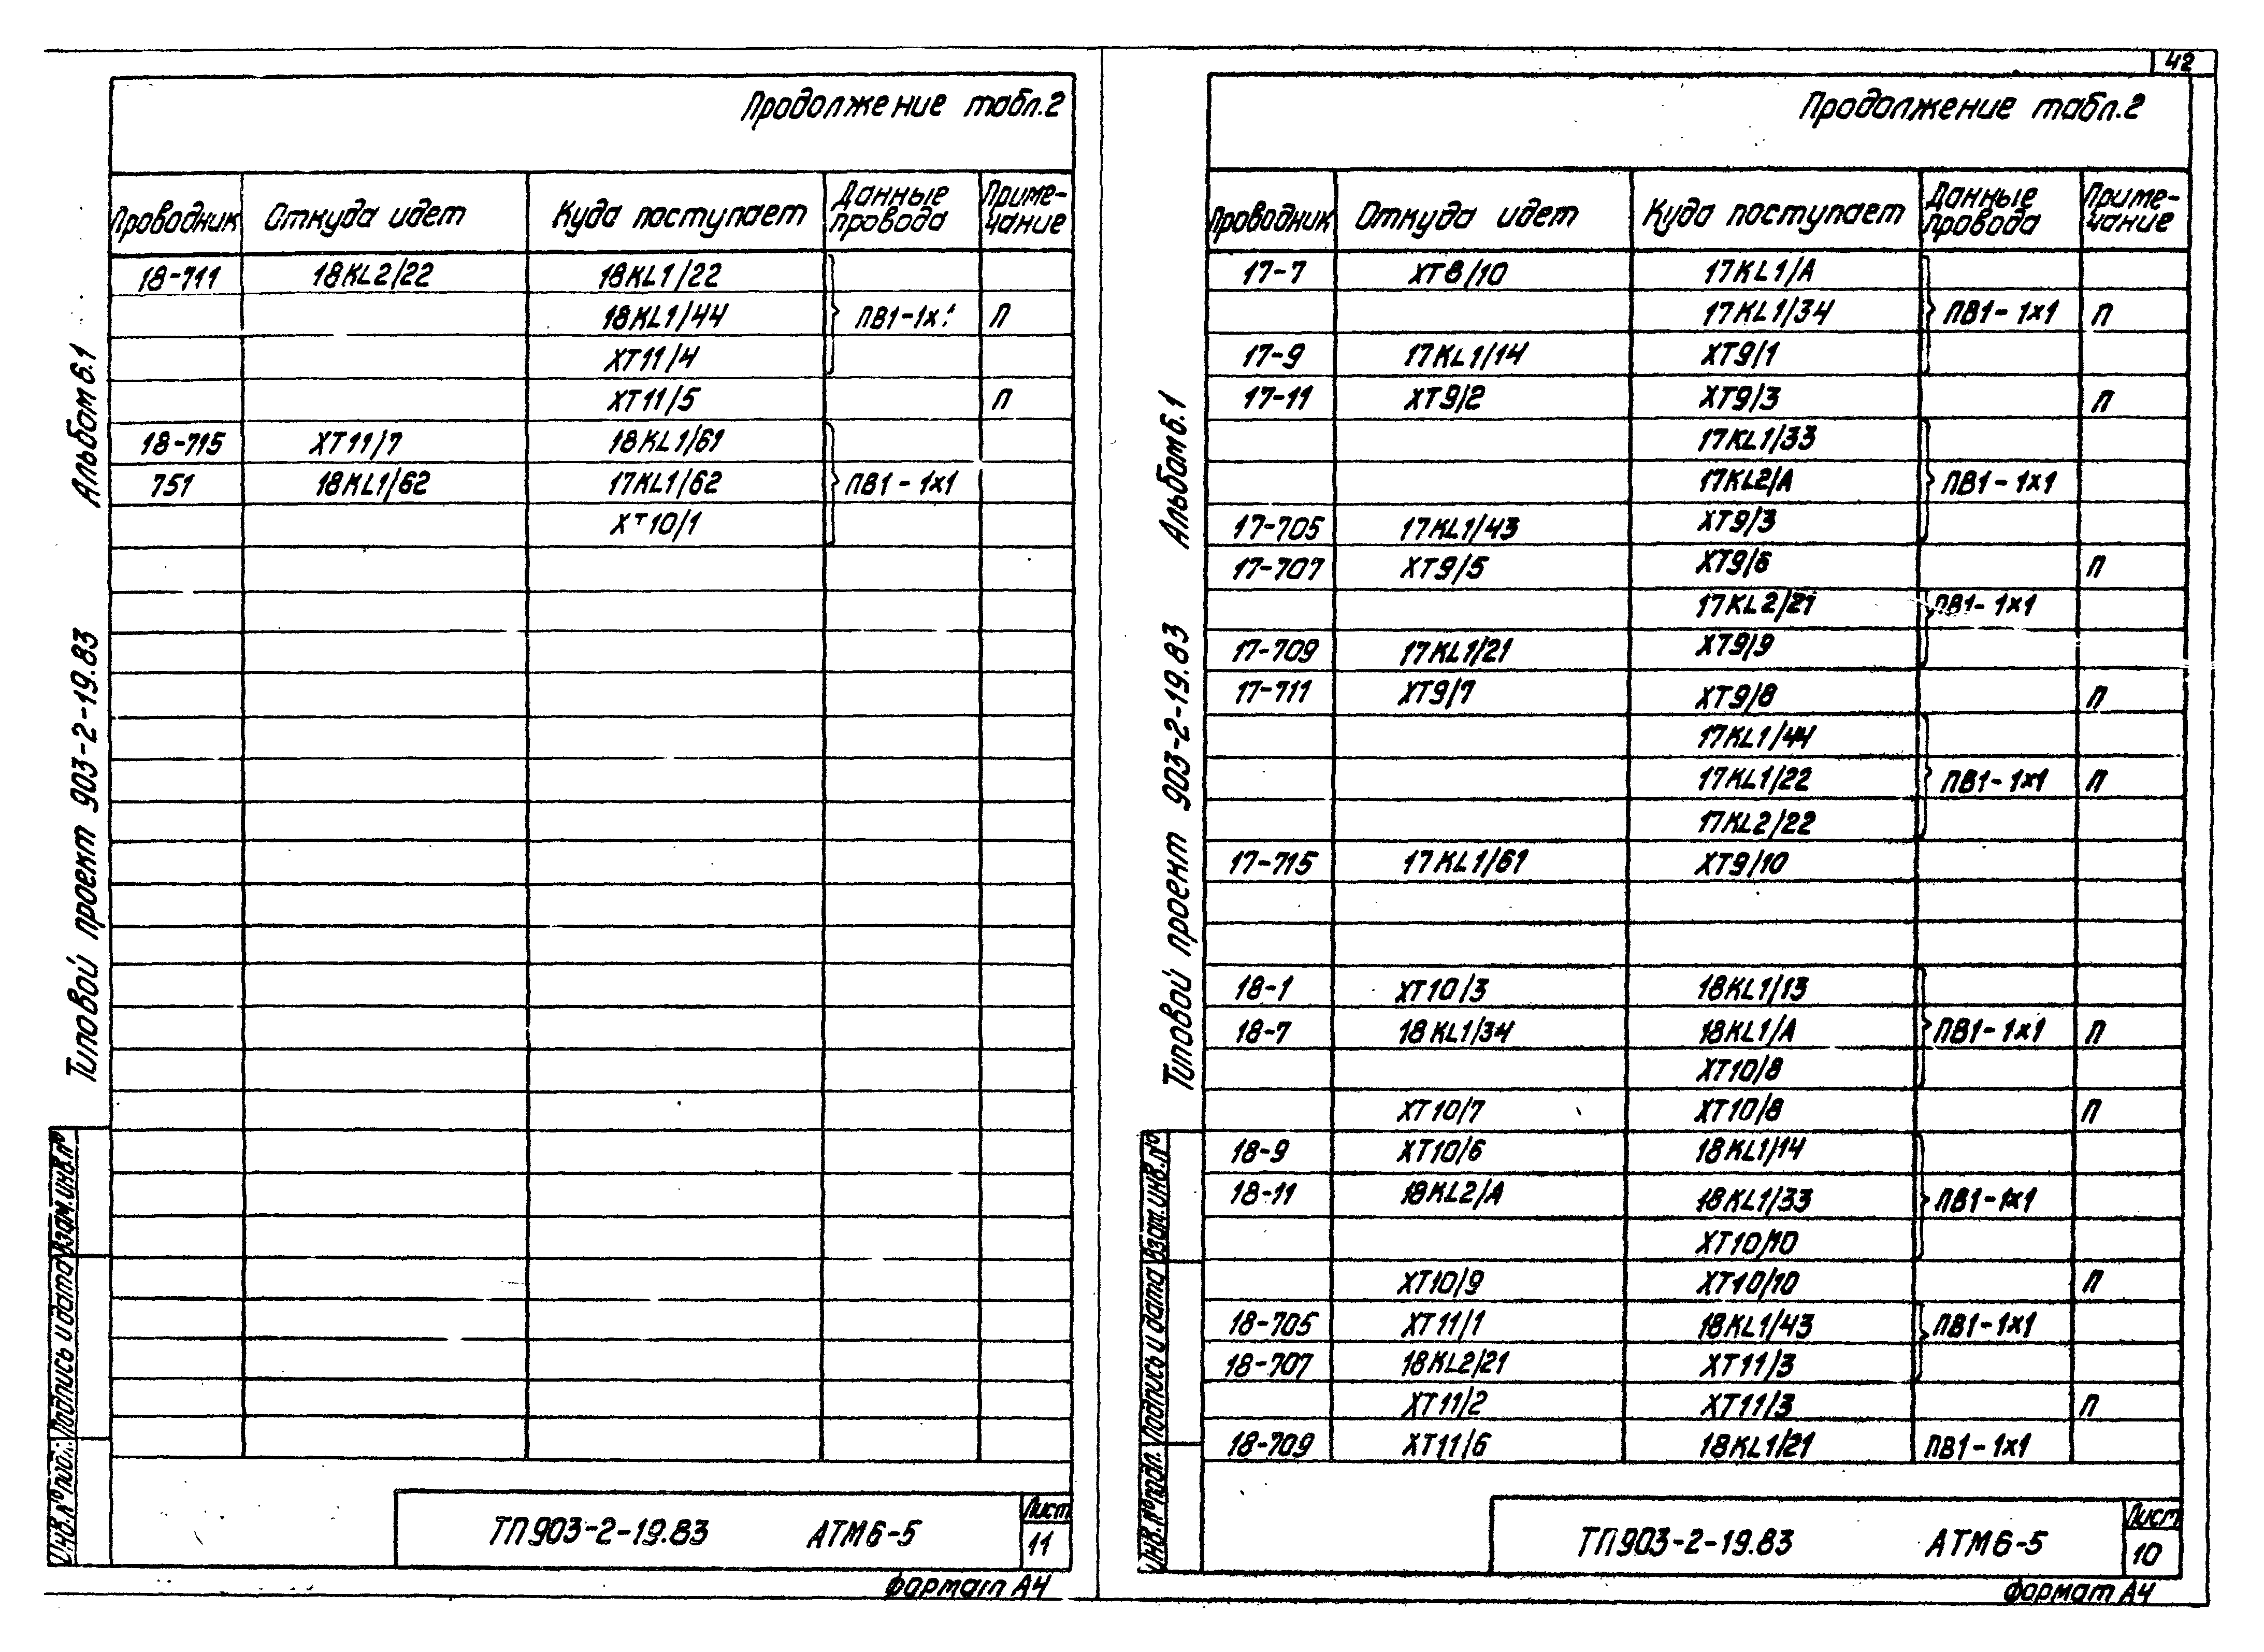 42
Продолжение табл.2
Проводник Откуда идет Куда поступает Данные провода Приме-чание
18-711 18KL2/22 18KL1/22
18KL1/44 ПВ1-1х1 П
ХТ11/4
ХТ11/5 П
18-715 ХТ11/7 18KL1/61
751 18KL1/62 17KL1/62 ПВ1-1х1
ХТ10/1
Альбом 6.1
Типовой проект 903-2-19.83
Взам.инв.№
Подпись и дата
Инв.№подл.
ТП903-2-19.83 АТМ6-5
Лист
11
Формат А4
Продолжение табл.2
Проводник Откуда идет Куда поступает Данные провода Приме-чание
17-7 ХТ8/10 17KL1/А
17KL1/34 ПВ1-1х1 П
17-9 17KL1/14 ХТ9/1
17-11 ХТ9/2 ХТ9/3 П
17KL1/33
17KL2/А ПВ1-1х1
17-705 17KL1/43 ХТ9/3
17-707 ХТ9/5 ХТ9/6 П
17KL2/21 ПВ1-1х1
17-709 17KL1/21 ХТ9/9
17-711 ХТ9/7 ХТ9/8 П
17KL1/44
17KL1/22 ПВ1-1х1 П
17KL2/22
17-715 17KL1/61 ХТ9/10
18-1 ХТ10/3 18KL1/13
18-7 18KL1/34 18KL1/А ПВ1-1х1 П
ХТ10/8
ХТ10/7 ХТ10/8 П
18-9 ХТ10/6 18KL1/14
18-11 18KL2/А 18KL1/33 ПВ1-1х1
ХТ10/10
ХТ10/9 ХТ10/10 П
18-705 ХТ11/1 18KL1/43 ПВ1-1х1
18-707 18KL2/21 ХТ11/3
ХТ11/2 ХТ11/3 П
18-709 ХТ11/6 18KL1/21 ПВ1-1х1
Альбом 6.1
Типовой проект 903-2-19.83
Взам.инв.№
Подпись и дата
Инв.№подл.
ТП903-2-19.83 АТМ6-5
Лист
10
Формат А4